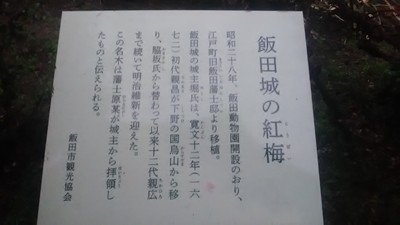 飯田城の紅梅
こうばい
昭和二十八年、飯田動物園開設のおり、
江戸町旧飯田藩士邸より移植。
飯田城の城主堀氏は、寛文十二年(一六
七二)初代親昌が下野の国烏山から移
り、脇坂氏から替わって以来十二代親広
まで続いて明治維新を迎えた。
この名木は藩士原某が城主から拝領し
たものと伝えられる。
飯田市観光協会